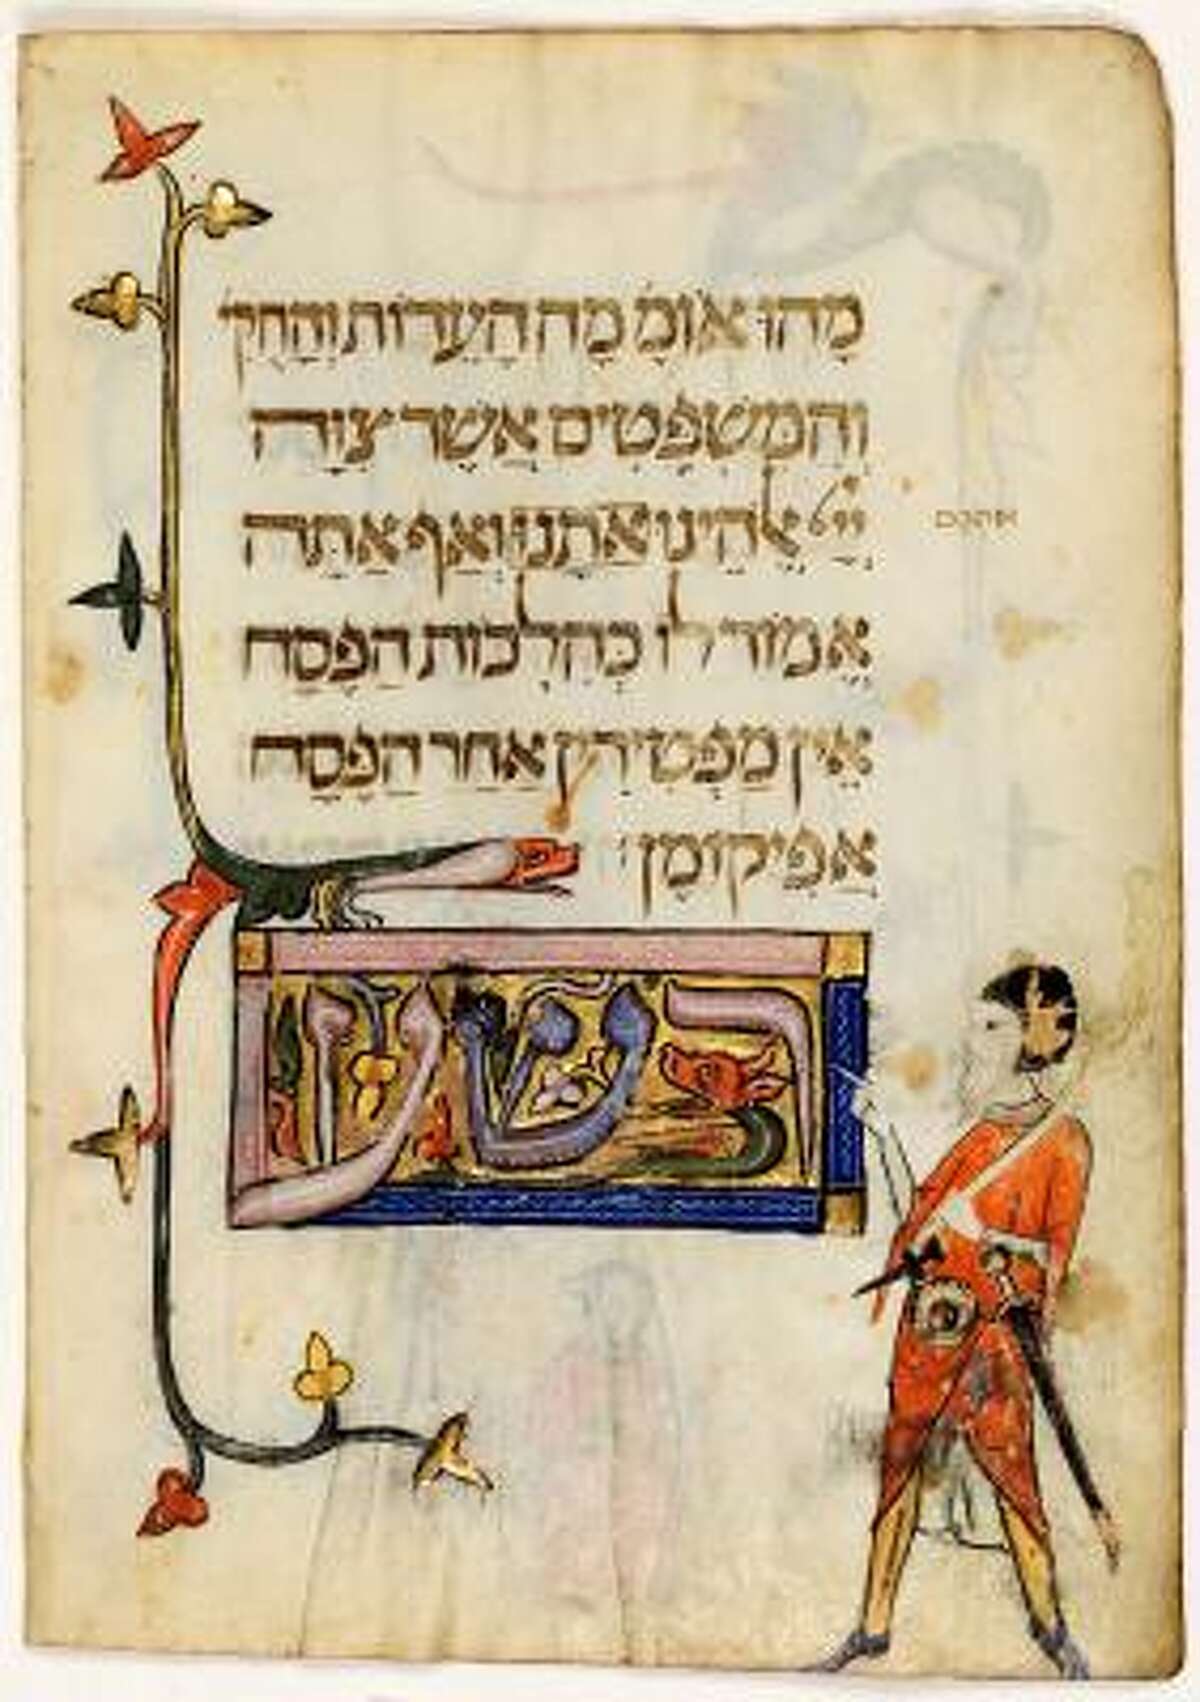 מהו אומ' מה העדות והחקי
והמשפטים אשר צוה
ייי אלהינו אתנו ואף אתה
אמור לו כהלכות הפסח
אין מפטירין אחר הפסח
אפיקומן:
רשע